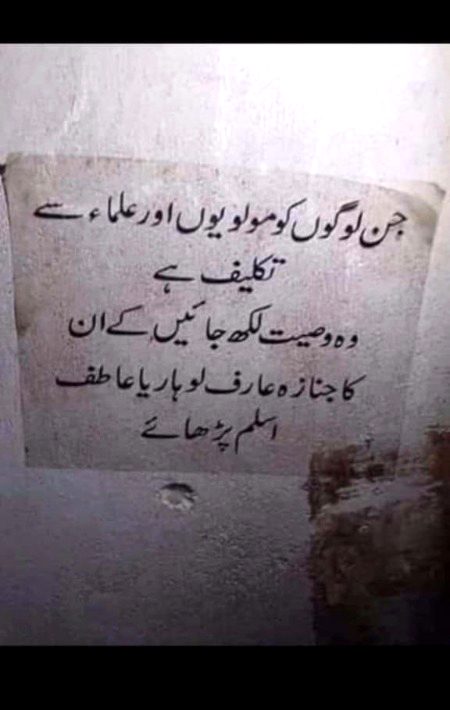 جن لوگوں کو مولویوں اور علماء سے
تکلیف ہے
وہ وصیت لکھ جائیں کے ان
کا جنازہ عارف لوہار یا عاطف
اسلم پڑھائے